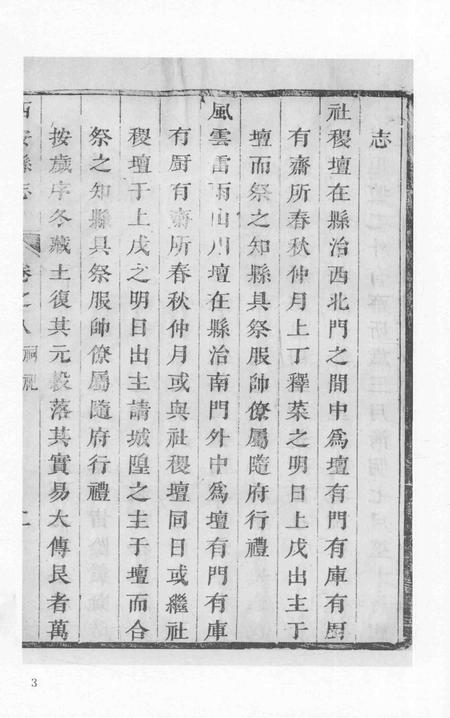 志
社稷壇在縣治西北門之間中為壇有門有庫有厨
有齋所春秋仲月上丁釋菜之明日上戊出主于
壇而祭之知縣具祭服帥僚屬隨府行禮
風雲雷雨山川壇在縣治南門外中為壇有門有庫
有厨有齋所春秋仲月或與社稷壇同日或繼社
稷壇于上戊之明日出主請城隍之主于壇而合
祭之知縣具祭服帥僚屬隨府行禮
按歲序冬藏土復其元穀落其實易大傳民者萬
西安縣志 卷之八 祠祀 二
3